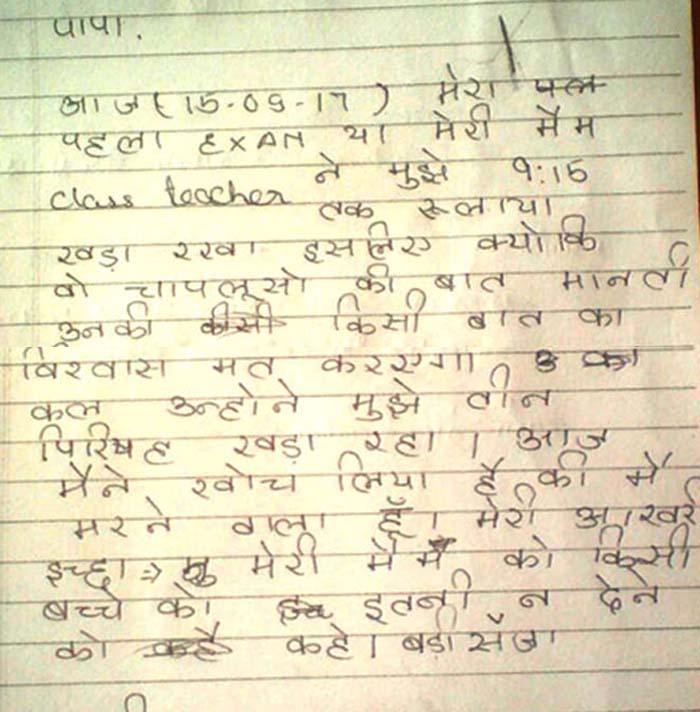 पापा.
आज (15-09-17) मेरा पल
पहला EXAM था मेरी मैम
class teacher ने मुझे 9:15
तक रूलाया
खड़ा रखा इसलिए क्योकि
वो चापलूसो की बात मानती
उनकी किसी बात का
विश्वास मत करएगा
कल उन्होने मुझे तीन
पिरिषह खड़ा रहा। आज
मैने खोच लिया है की मै
मरने वाला हूँ। मेरी आखरी
इच्छा⇒ मेरी मैम को किसी
बच्चे को इतनी न देने
को कहे। बड़ी सजा